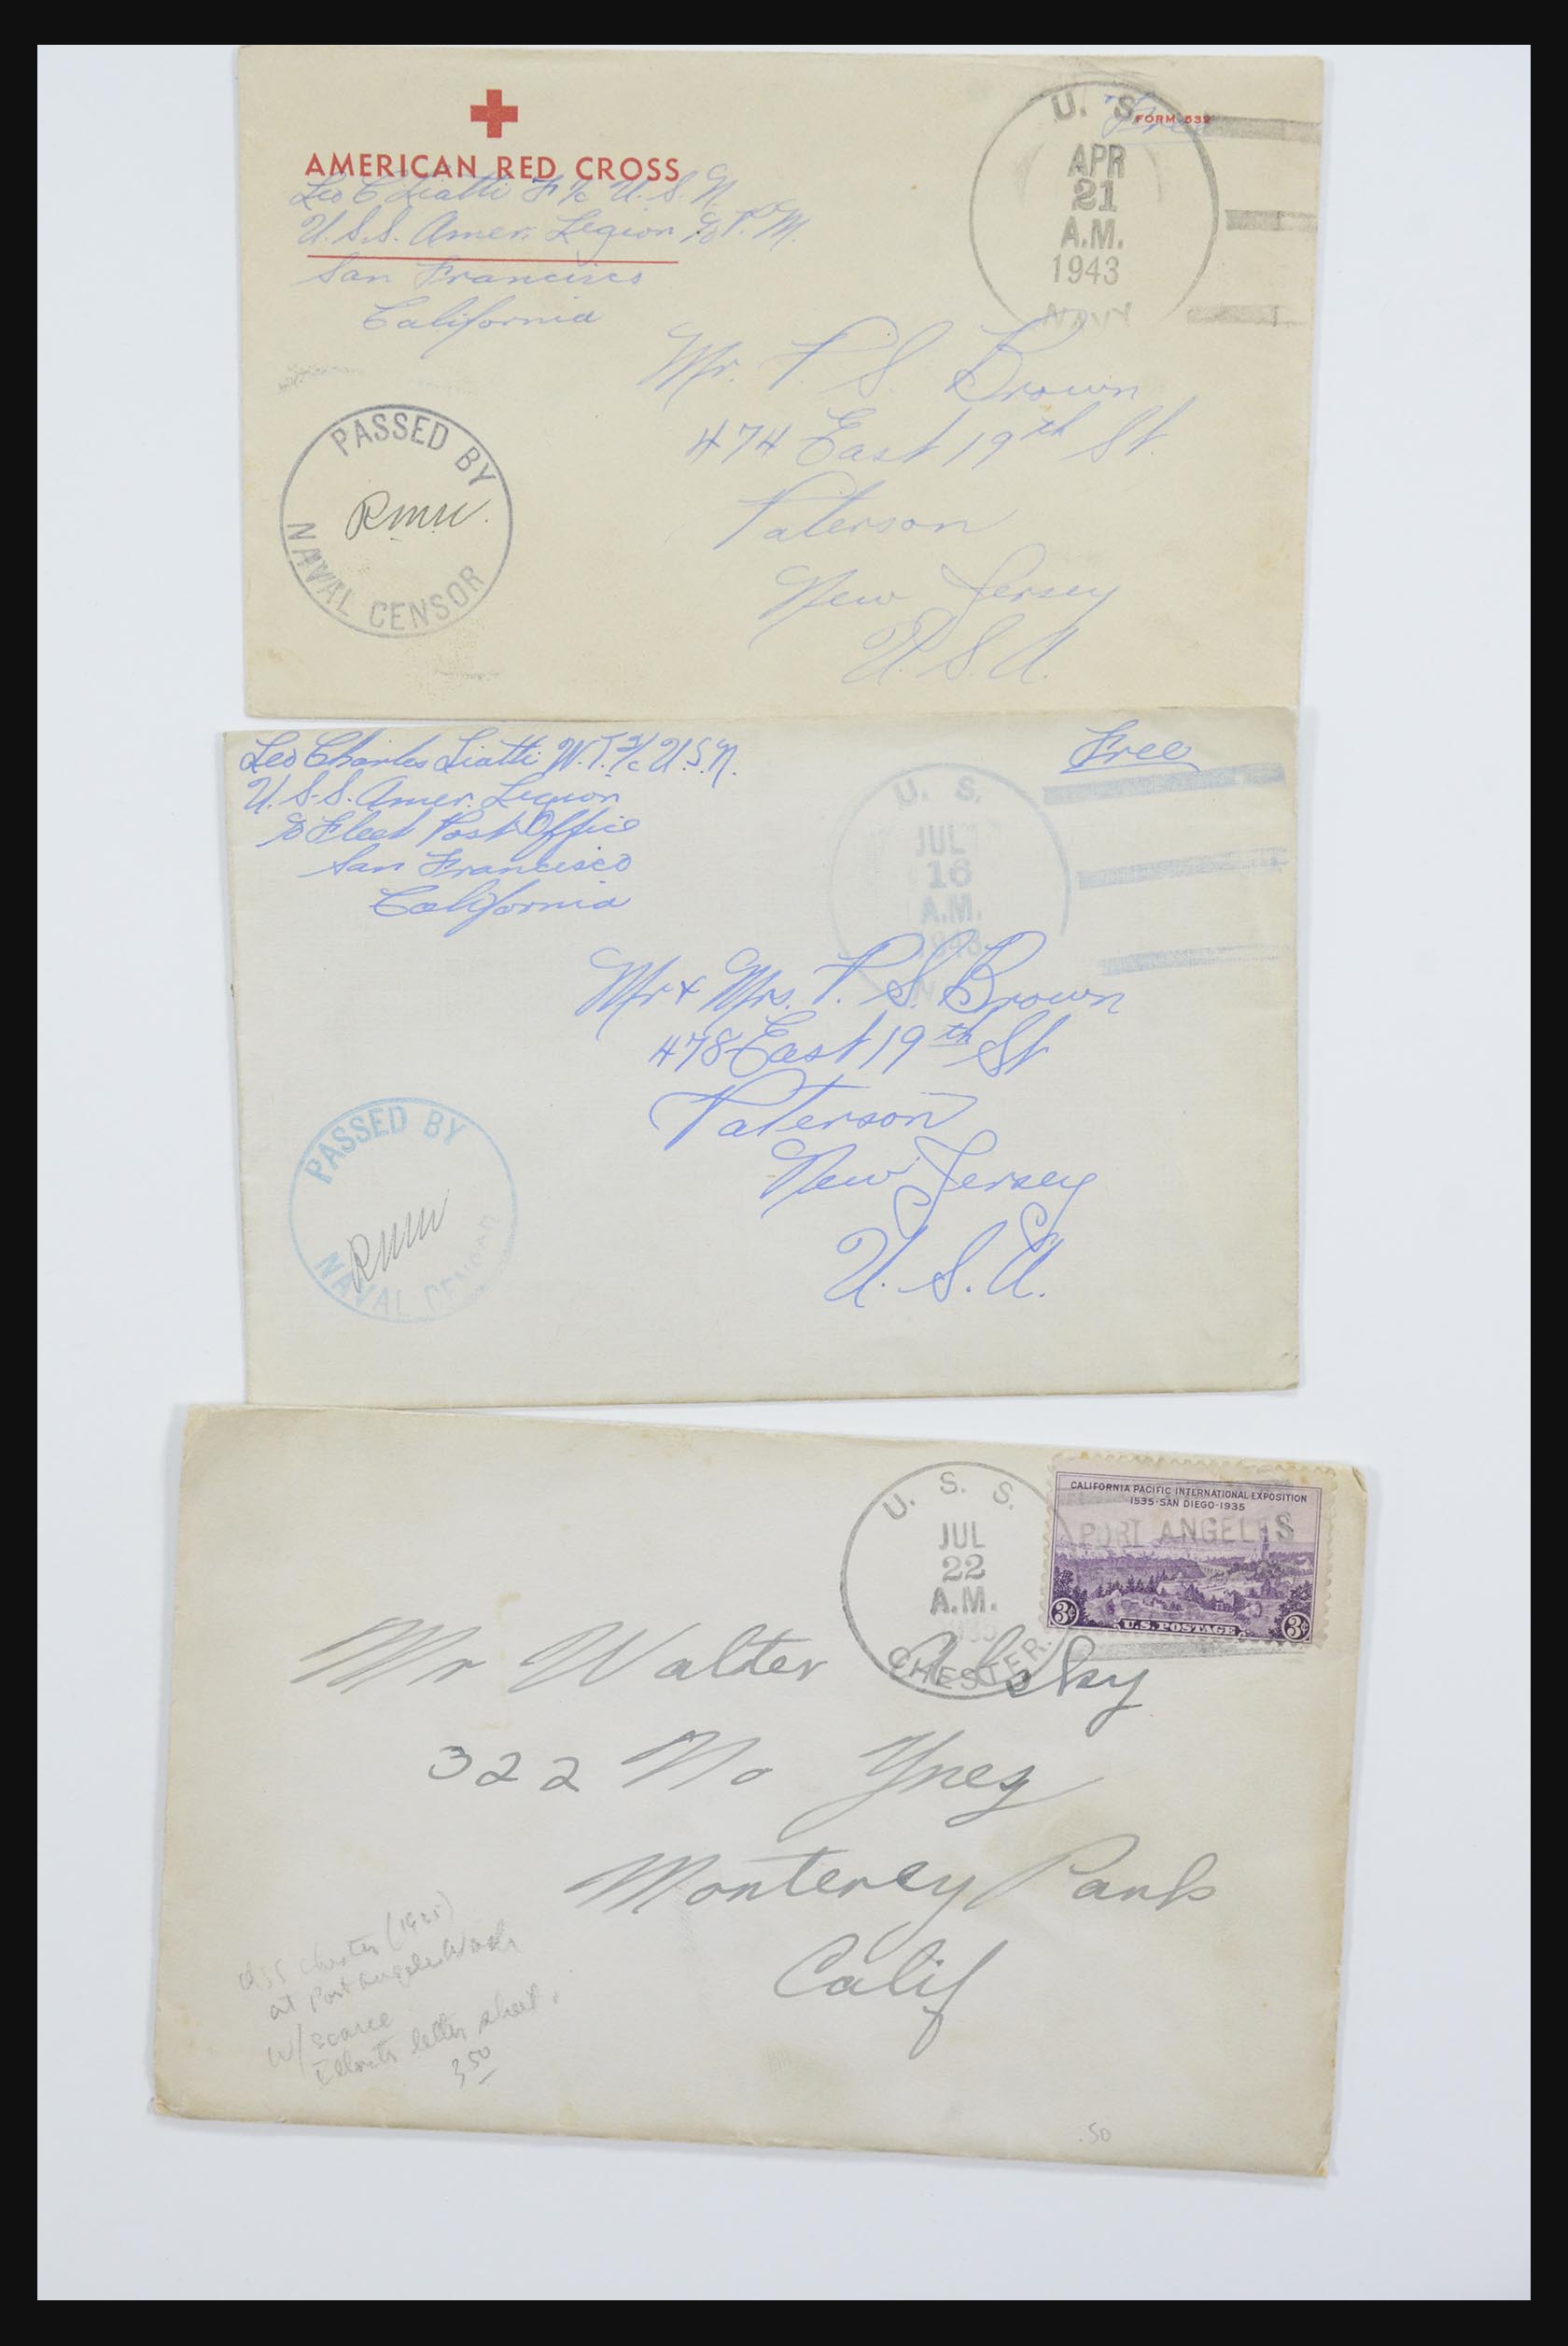 AMERICAN RED CROSS
Leo C Liatti F 1/c U.S.N.
U.S.S. Amer. Legion c/o P.M.
San Francisco
California
"Free"
FORM 539
U. S.
APR
21
A.M.
1943
NAVY
Mr. P. S. Brown
474 East 19th St.
Paterson
New Jersey
U.S.A.
PASSED BY
NAVAL CENSOR
Leo Charles Liatti W.T. 2/c U.S.N.
U.S.S. Amer. Legion
c/o Fleet Post Office
San Francisco
California
Free
U. S.
JUL
16
A.M.
1943
Mr + Mrs. P. S. Brown
478 East 19th St
Paterson
New Jersey
U.S.A.
PASSED BY
NAVAL CENSOR
U. S. S.
JUL
22
A.M.
CHESTER.
CALIFORNIA PACIFIC INTERNATIONAL EXPOSITION
1535·SAN DIEGO·1935
PORT ANGELES
3¢ U.S. POSTAGE 3¢
Mr Walter
322 No Ynez
Monterey Park
Calif
USS Chester (1935)
at Port Angeles Wash
w/ scarce
letter sheet.
3.50
.50